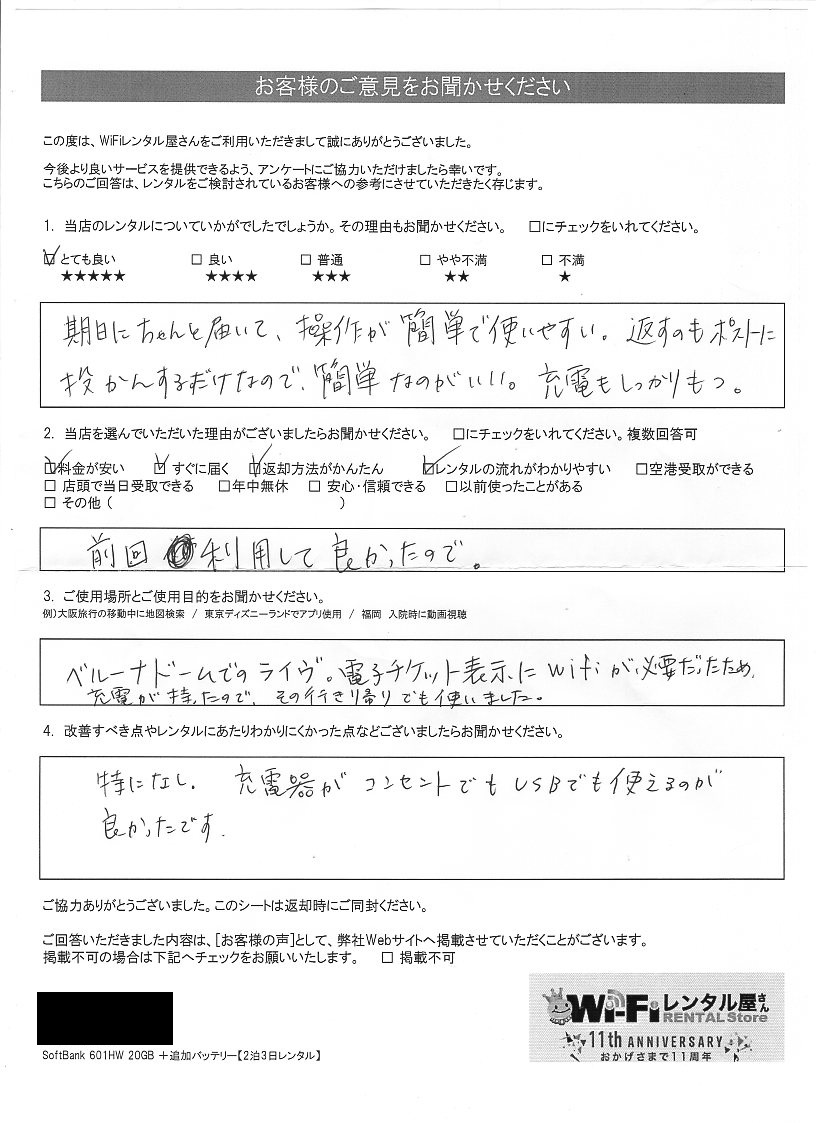 お客様のご意見をお聞かせください
この度は、WiFiレンタル屋さんをご利用いただきまして誠にありがとうございました。
今後より良いサービスを提供できるよう、アンケートにご協力いただけましたら幸いです。
こちらのご回答は、レンタルをご検討されているお客様への参考にさせていただきたく存じます。
1. 当店のレンタルについていかがでしたでしょうか。その理由もお聞かせください。 □にチェックをいれてください。
☑ とても良い □ 良い □ 普通 □ やや不満 □ 不満
★★★★★ ★★★★ ★★★ ★★ ★
期日にちゃんと届いて、操作が簡単で使いやすい。返すのもポストに
投かんするだけなので、簡単なのがいい。充電もしっかりもつ。
2. 当店を選んでいただいた理由がございましたらお聞かせください。 □にチェックをいれてください。複数回答可
☑料金が安い ☑ すぐに届く ☑返却方法がかんたん ☑レンタルの流れがわかりやすい □空港受取ができる
□ 店頭で当日受取できる □年中無休 □ 安心・信頼できる □以前使ったことがある
□ その他 ( )
前回 利用して良かったので。
3. ご使用場所とご使用目的をお聞かせください。
例)大阪旅行の移動中に地図検索 / 東京ディズニーランドでアプリ使用 / 福岡 入院時に動画視聴
ベルーナドームでのライヴ。電子チケット表示にwifiが必要だったため。
充電が持ったので、その行き帰りでも使いました。
4. 改善すべき点やレンタルにあたりわかりにくかった点などございましたらお聞かせください。
特になし。 充電器がコンセントでもUSBでも使えるのが
良かったです。
ご協力ありがとうございました。このシートは返却時にご同封ください。
ご回答いただきました内容は、[お客様の声]として、弊社Webサイトへ掲載させていただくことがございます。
掲載不可の場合は下記へチェックをお願いいたします。 □ 掲載不可
SoftBank 601HW 20GB +追加バッテリー【2泊3日レンタル】
Wi-Fiレンタル屋さん
RENTAL Store
11th ANNIVERSARY
おかげさまで11周年